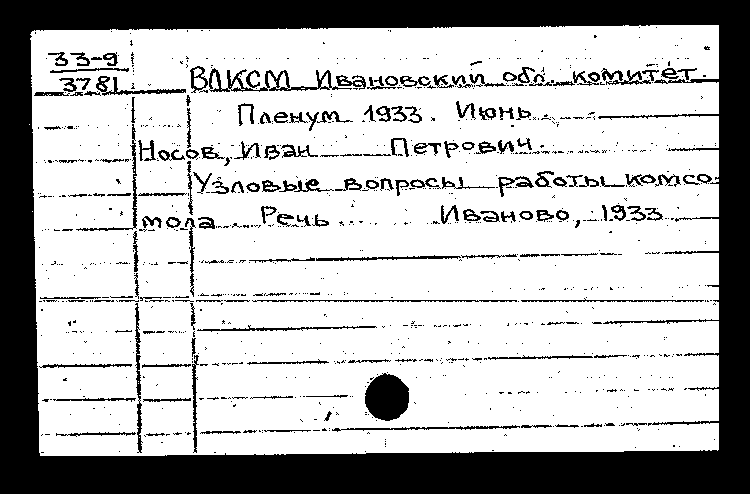 33-9
3781
ВЛКСМ Ивановский обл. комитет.
Пленум 1933. Июнь.
Носов, Иван Петрович.
Узловые вопросы работы комсо-
мола. Речь... Иваново, 1933